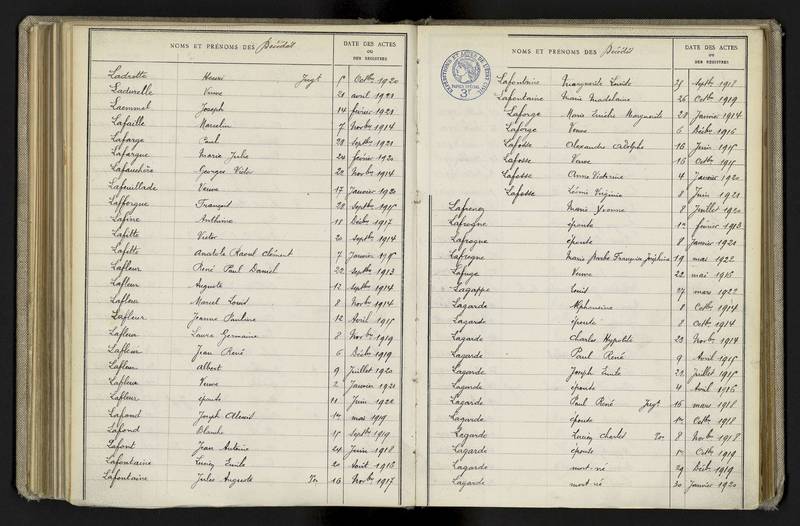 NOMS ET PRÉNOMS DES Décédés
DATE DES ACTES
OU
DES REGISTRES
Ladrotte Henri Jugt 5 Octbre 1920
Ladurelle Veuve 21 avril 1921
Laemmel Joseph 14 février 1921
Lafaille Marcelin 7 Novbre 1914
Lafarge Paul 28 septbre 1921
Lafargue Marie Julie 24 février 1920
Lafauchère Georges Victor 22 Novbre 1914
Lafeuillade Veuve 17 Janvier 1920
Lafforgue François 28 Septbre 1915
Lafine Anthime 18 Décbre 1917
Lafitte Victor 20 Septbre 1914
Lafitte Anatole Raoul Clément 7 Janvier 1915
Lafleur René Paul Daniel 22 Septbre 1913
Lafleur Auguste 12 Septbre 1914
Lafleur Marcel Louis 8 Novbre 1914
Lafleur Jeanne Pauline 12 Avril 1915
Lafleur Laure Germaine 8 Novbre 1919
Lafleur Jean René 6 Décbre 1919
Lafleur Albert 9 Juillet 1920
Lafleur Veuve 2 Janvier 1921
Lafleur épouse 11 Juin 1922
Lafond Joseph 1er mai 1919
Lafond Blanche 15 Septbre 1919
Lafont Jean Antoine 24 Juin 1918
Lafontaine Lucien Emile 20 Août 1913
Lafontaine Jules Auguste Jon 16 Novbre 1917
NOMS ET PRÉNOMS DES Décédés
DATE DES ACTES
OU
DES REGISTRES
Lafontaine Marguerite 25 Septbre 1918
Lafontaine Marie Madelaine 26 Octbre 1919
Laforge Marie Emélie Marguerite 28 Janvier 1914
Laforge Veuve 6 Décbre 1916
Lafosse Alexandre Adolphe 16 Juin 1915
Lafosse Veuve 16 Octbre 1915
Lafosse Anna Victorine 4 Janvier 1920
Lafosse Léonie Virginie 8 Juin 1921
Lafrenez Marie Yvonne 8 Juillet 1920
Lafrogne épouse 1er février 1913
Lafrogne épouse 8 Janvier 1921
Lafrogne Marie Barbe Françoise Joséphine 19 mai 1922
Lafuge Veuve 22 mai 1916
Lagappe Louis 27 mars 1922
Lagarde Alphonsine 8 Octbre 1914
Lagarde épouse 8 Octbre 1914
Lagarde Charles Hypolite 22 Novbre 1914
Lagarde Paul René 9 Avril 1915
Lagarde Joseph Emile 21 Juillet 1915
Lagarde épouse 4 Avril 1916
Lagarde Paul René Jugt 16 mars 1918
Lagarde épouse 1er Octbre 1918
Lagarde Lucien Charles Jon 8 Novbre 1918
Lagarde épouse 1er Octbre 1919
Lagarde mort-né 29 Décbre 1919
Lagarde mort-né 30 Janvier 1920